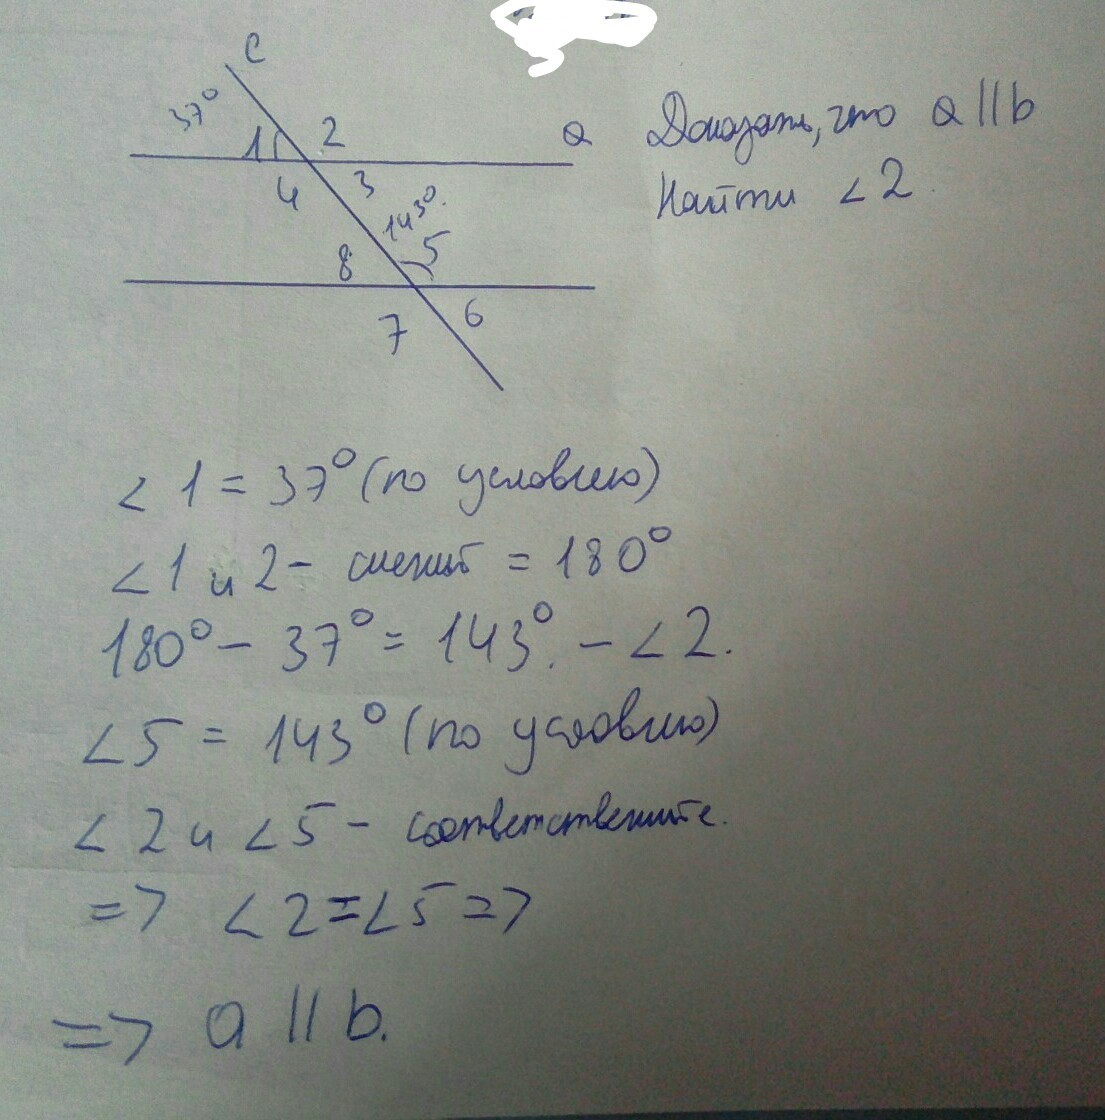 c
37°
1 2
a
4 3
143°
8 5
7 6
Доказать, что a || b
Найти ∠2.
∠1 = 37° (по условию)
∠1 и 2 - смежные = 180°
180° - 37° = 143°. - ∠2.
∠5 = 143° (по условию)
∠2 и ∠5 - соответственные.
=> ∠2 = ∠5 =>
=> a || b.